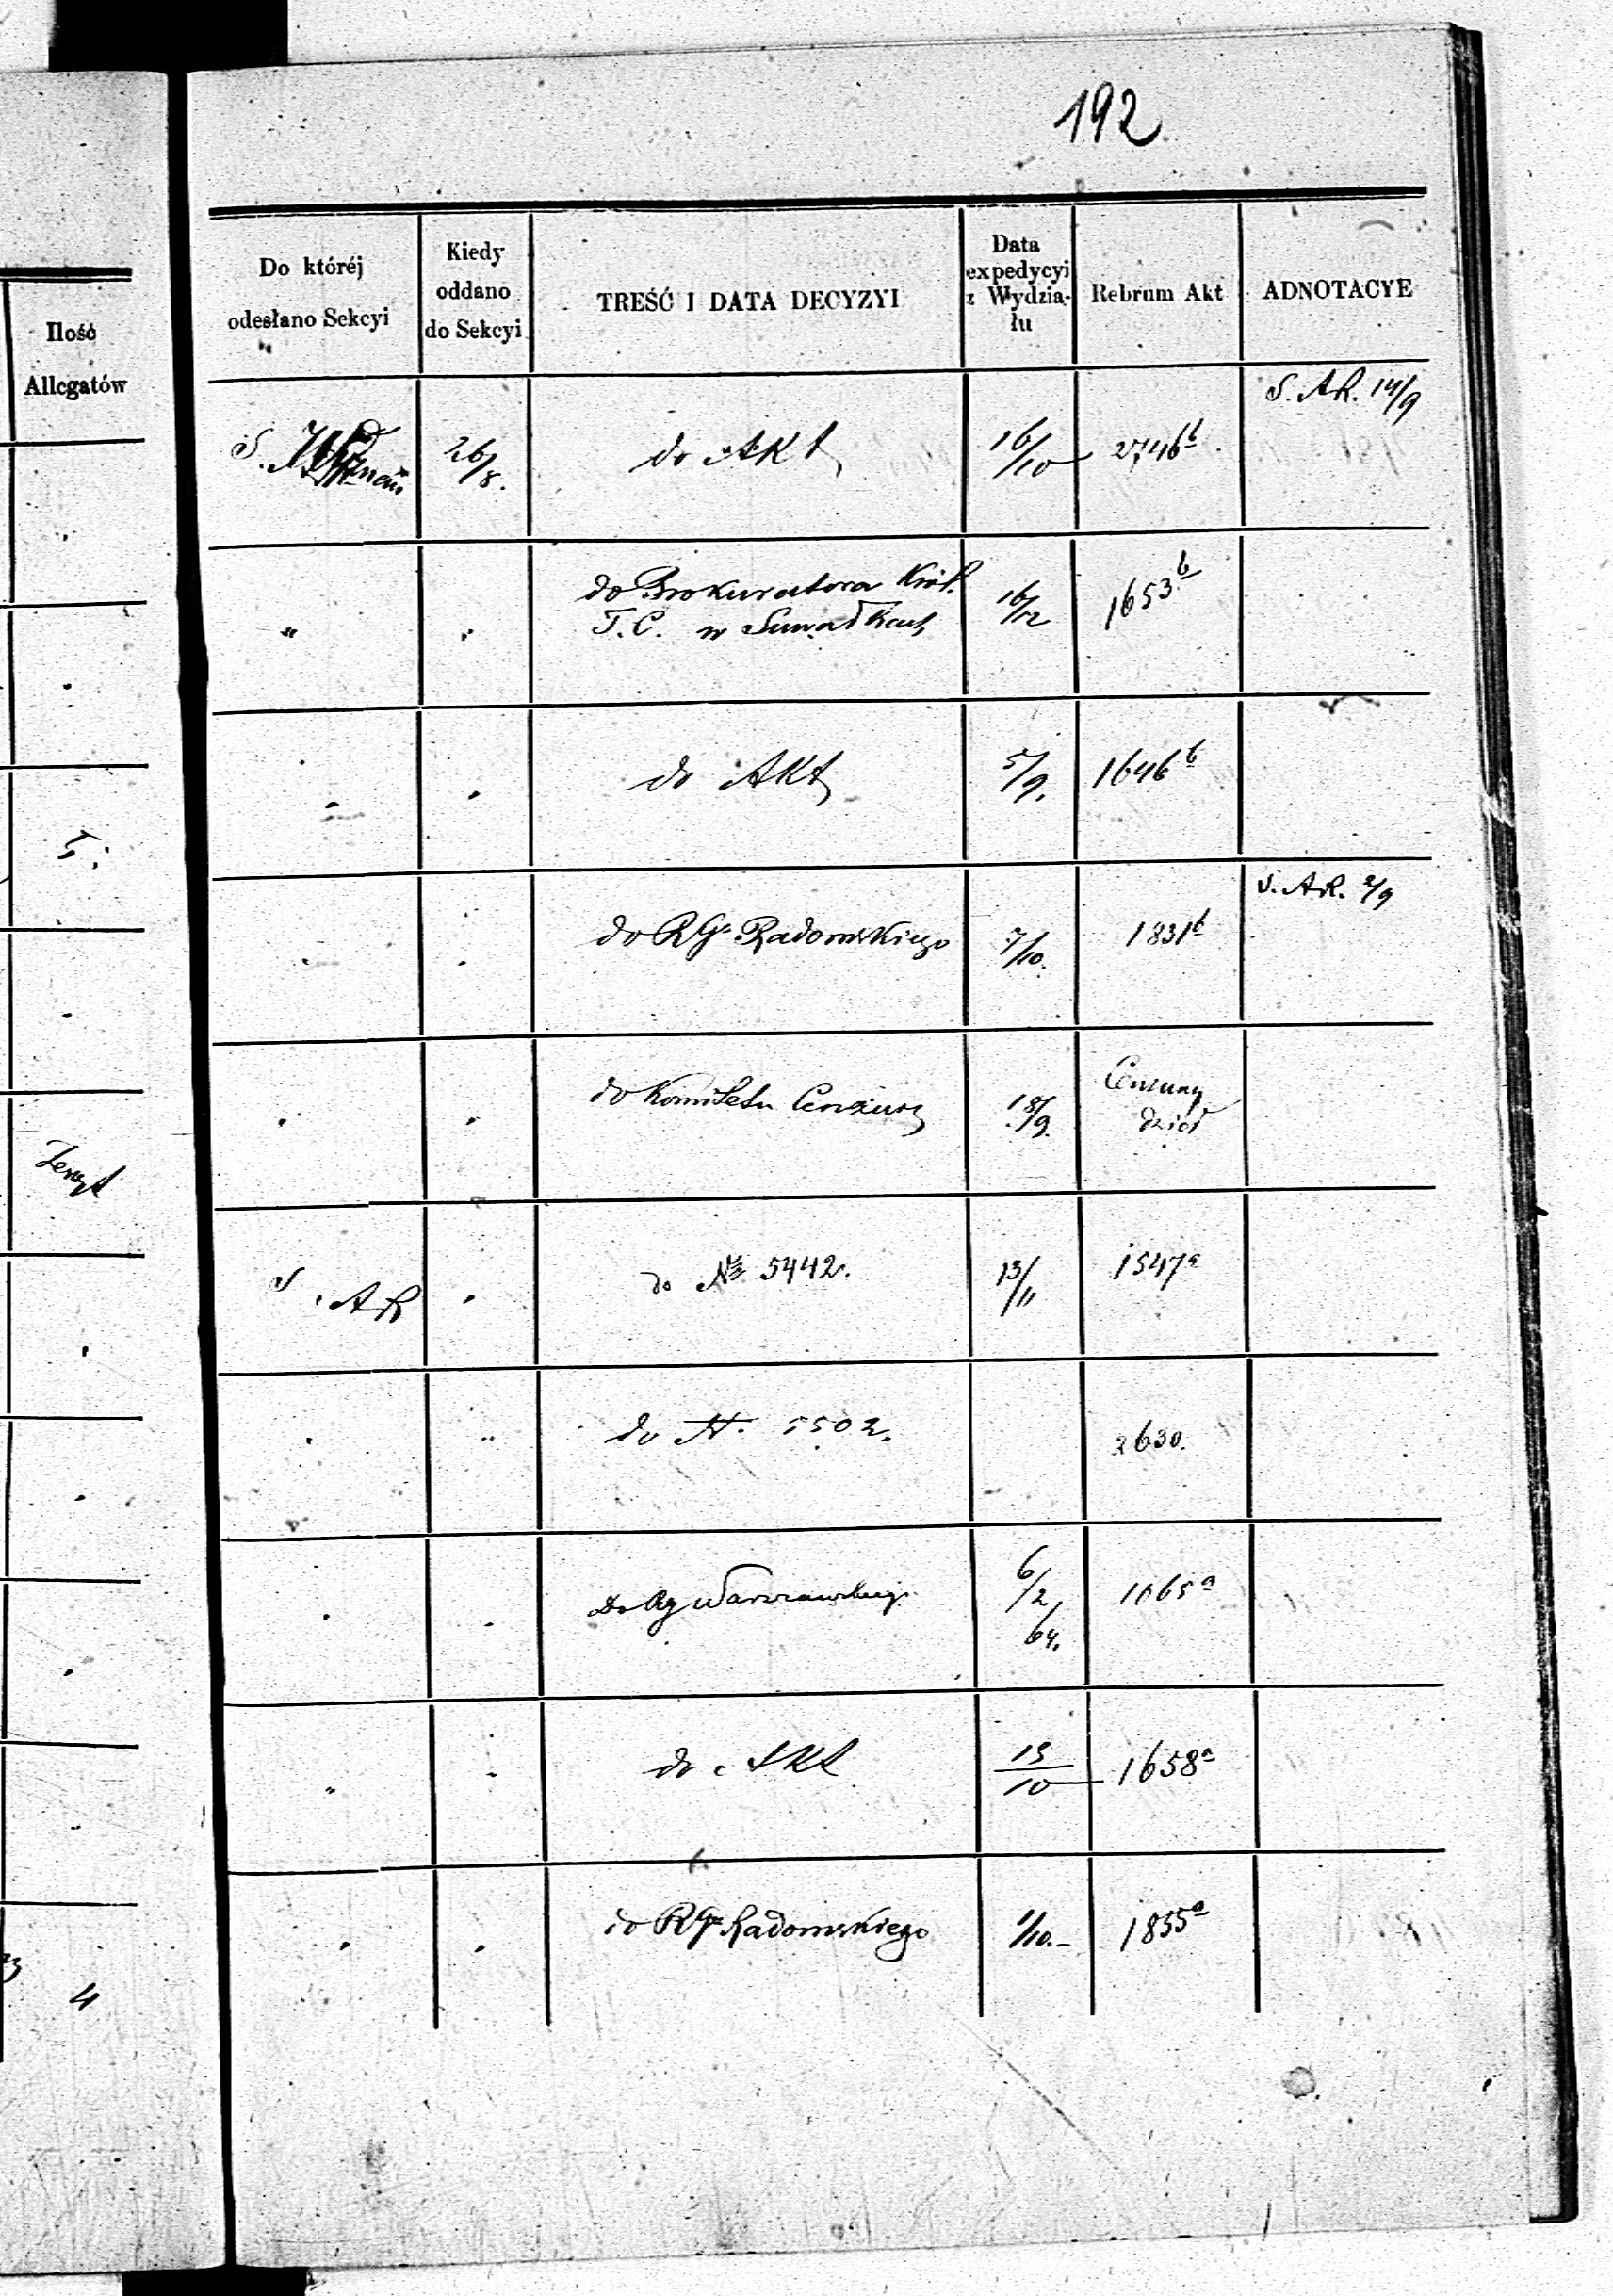 192
Ilość
Allegatów
5.
Zeszyt
4
Do któréj
odesłano Sekcyi
Kiedy
oddano
do Sekcyi
TREŚĆ I DATA DECYZYI
Data
expedycyi
z Wydzia-
łu
Rebrum Akt
ADNOTACYE
S.
26/8.
do Akt
16/10
2746 b
S. AR. 14/9
"
do Prokuratora Król.
T. C. w Suwałkach
16/12
1653 b
do Akt
5/9.
1646 b
do RGo Radomskiego
7/10.
1831 b
S. AR. 2/9
do Komitetu Cenzury
18/9.
Cenzury
dzieł
S. AR
do No 5442.
13/11
1547 a
do N. 5502.
2630.
Do Rg Warszawskiego
6/2
64.
1065 a
"
do Akt
15/10
1658 a
do RGo Radomskiego
1/10.
1855 a